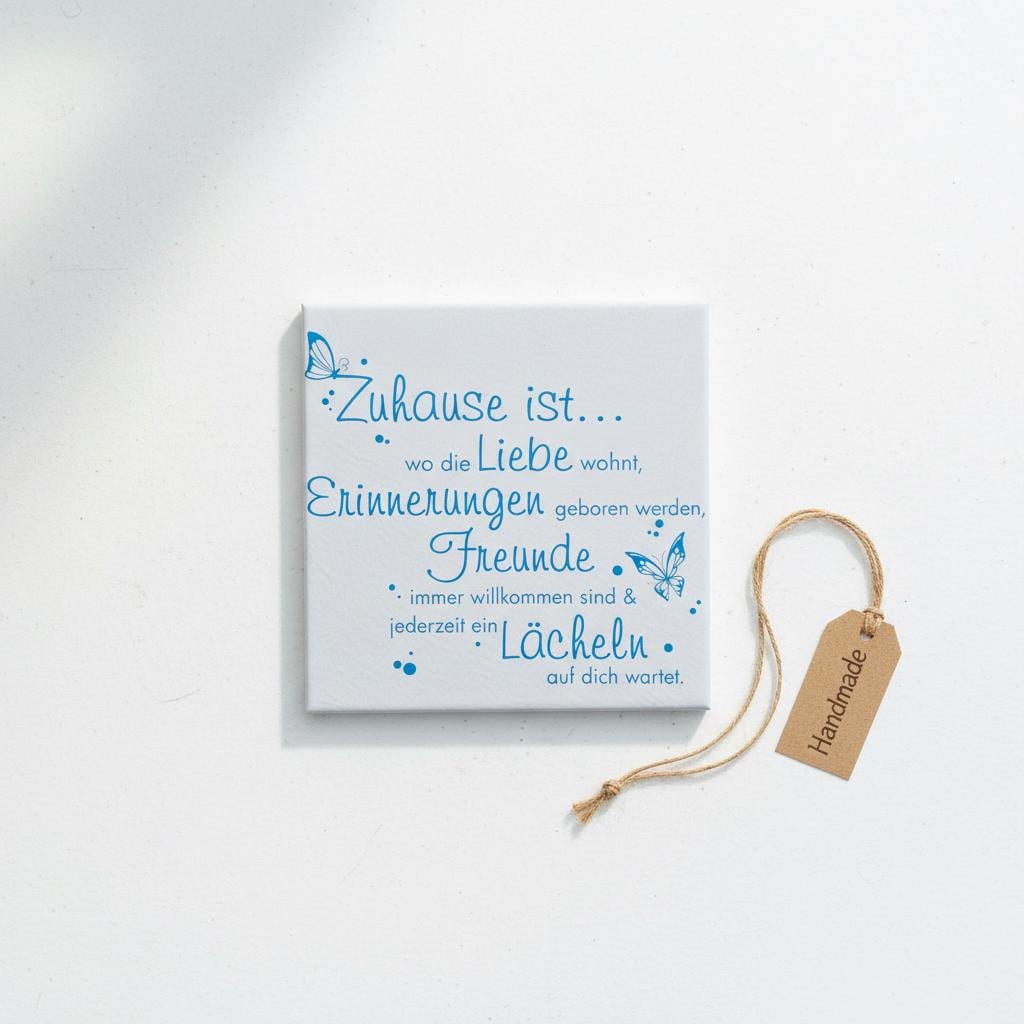 Zuhause ist...
wo die Liebe wohnt,
Erinnerungen geboren werden,
Freunde
immer willkommen sind &
jederzeit ein Lächeln
auf dich wartet.
Handmade